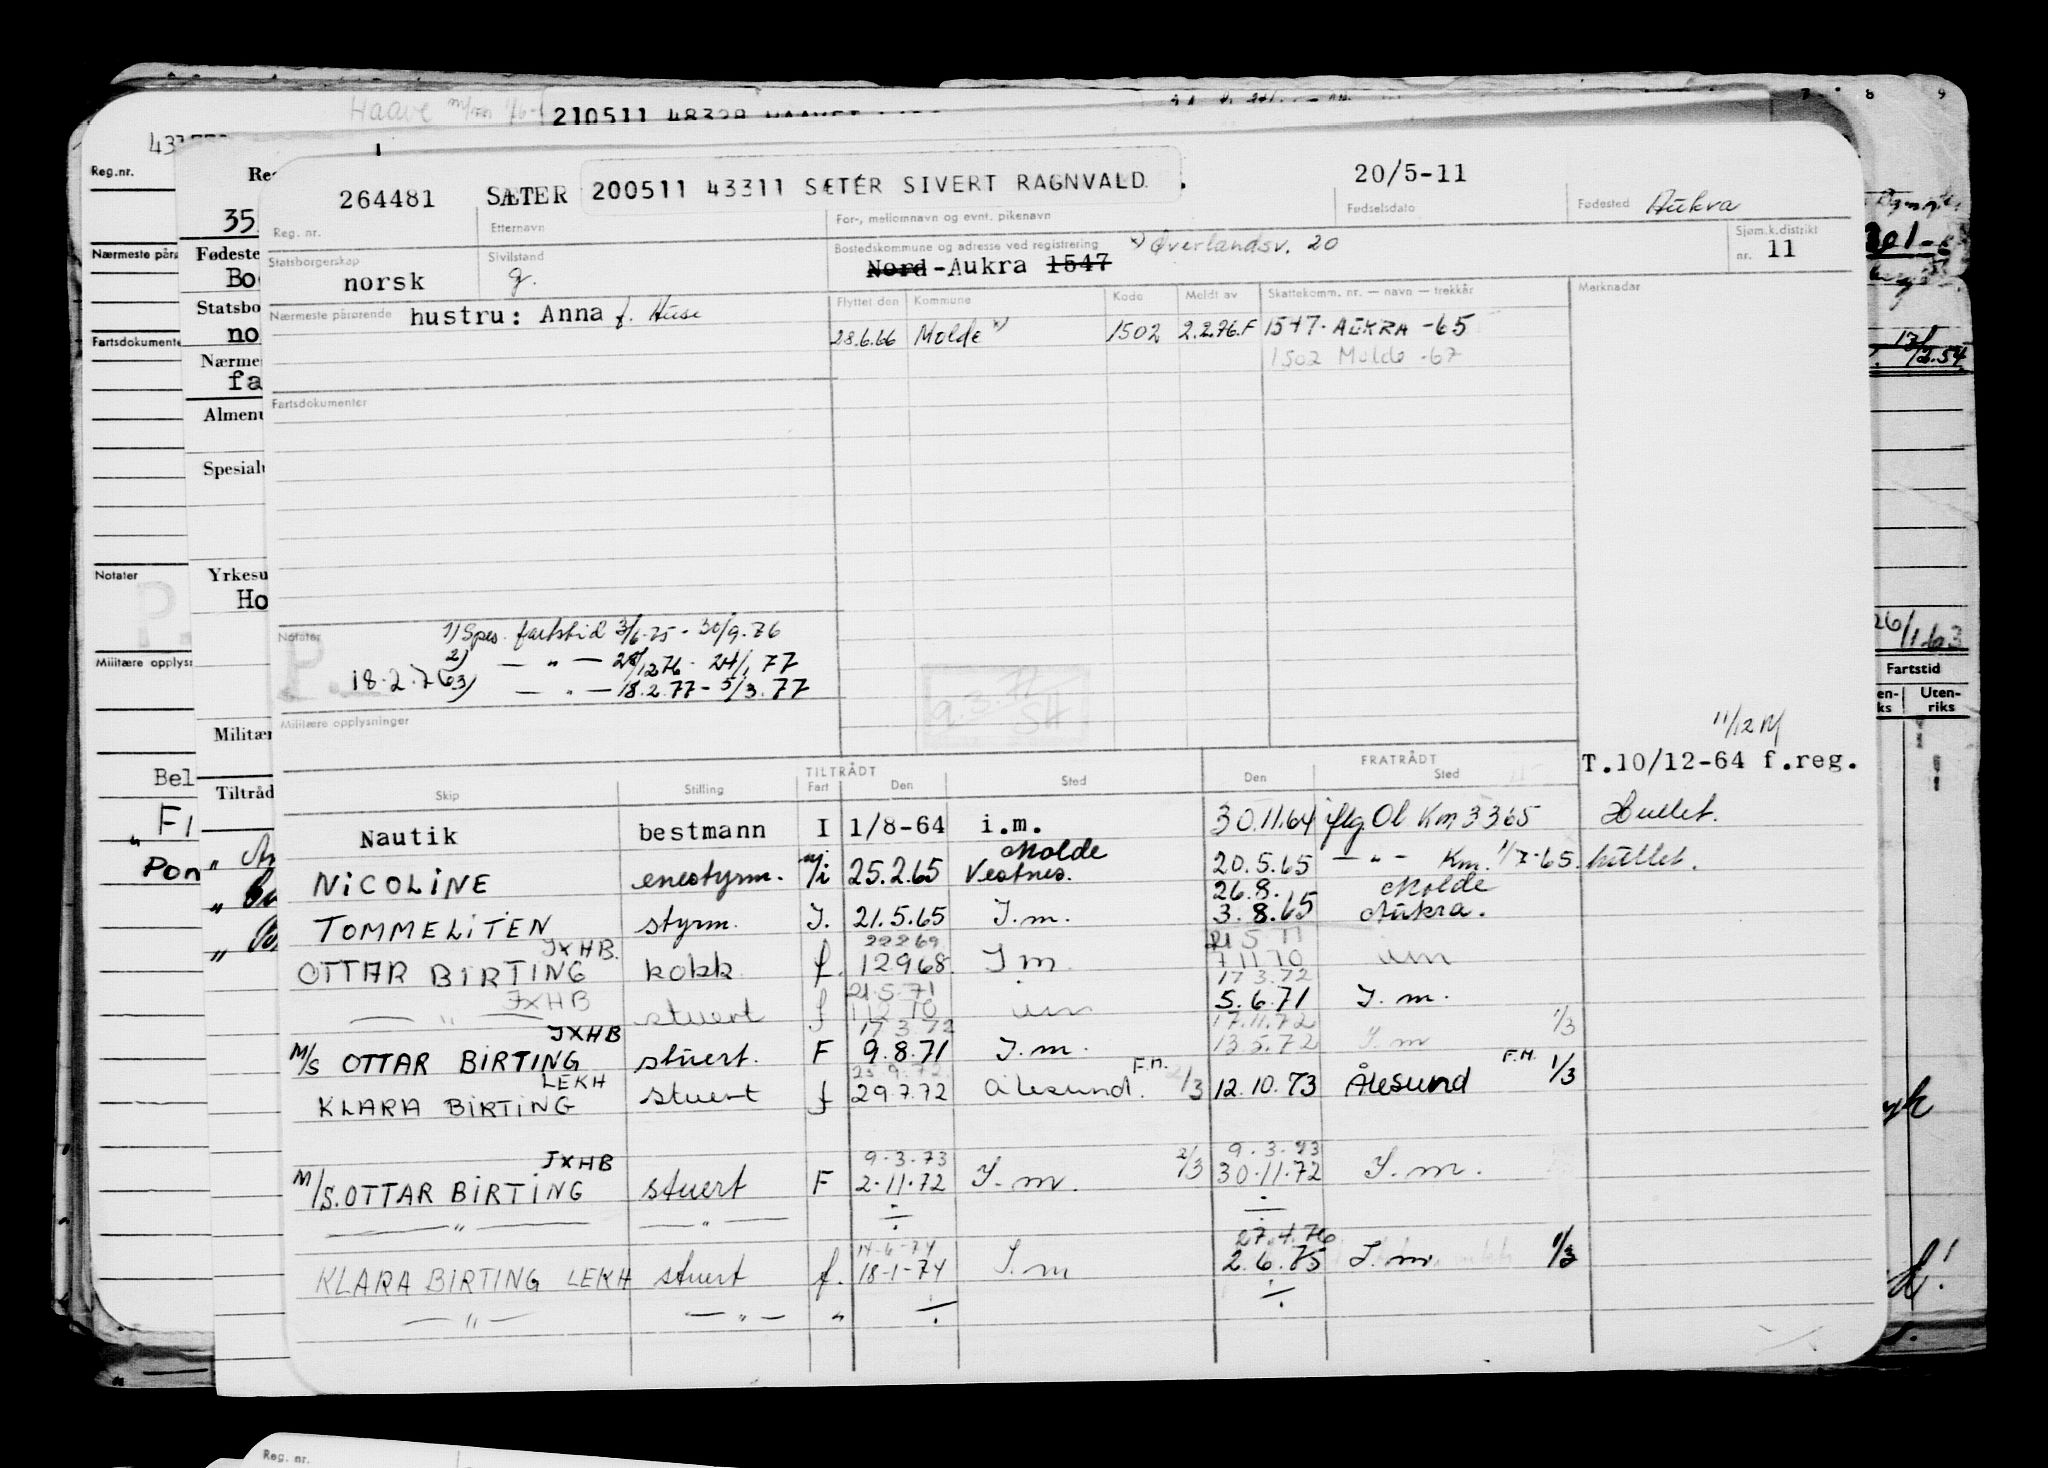 Haave
210511 48329 HAAVET
7 8 9
Reg.nr.
264481 SÆTER 200511 43311 SÆTER SIVERT RAGNVALD . 20/5-11 Aukra
Reg. nr. Etternavn For-, mellomnavn og evnt. pikenavn Fødselsdato Fødested
Statsborgerskap norsk Sivilstand g. Bostedskommune og adresse ved registrering x) Øverlandsv. 20 Sjøm.k.distrikt
Nord-Aukra 1547 nr. 11
Nærmeste pårørende hustru: Anna f. Huse Flyttet den Kommune Kode Meldt av Skattekomm. nr. — navn — trekkår Merknader
28.6.66 Molde x) 1502 2.2.76.F 1547. AUKRA -65
1502 Molde -67
Fartsdokumenter
Notater 1) Spes. fartstid 3/6-75 - 30/9.76
P. 2) — " — 28/12 76 - 24/1 77
18.2.76 3) — " — 18.2.77 - 5/3.77
9.3.77
SH
Militære opplysninger
11/12 M
TILTRÅDT FRATRÅDT T.10/12-64 f.reg.
Skip Stilling Fart Den Sted Den Sted
Nautik bestmann I 1/8-64 i.m. 30.11.64 iflg Ol Km 3365 Hullet.
Molde
NICOLINE enestyrm. n/i 25.2.65 Vestnes. 20.5.65 — " — Km. 1/7-65. hullet.
26.8. Molde
TOMMELITEN styrm. I. 21.5.65 I.m. 3.8.65 Aukra.
JXHB. 22269 21 5 71
OTTAR BIRTING kokk f. 12968. I m. 7 11 70 im
JXHB 21.5.71 17 3.72
— " — stuert f 112 70 im 5.6.71 I. m.
JXHB 17 3 72 17.11.72 1/3
M/S OTTAR BIRTING stuert. F 9.8.71 I.m. 13 5.72 I.m
LEKH 25.9.72. F.H. F.H.
KLARA BIRTING stuert f 29.7.72 Ålesund. 2/3 12.10.73 Ålesund 1/3
JXHB 9.3.73 2/3 9.3.73
M/S. OTTAR BIRTING stuert F 2.11.72 I. m. 30.11.72 I. m.
— " — — " — ÷ ÷
14-6-74 27.4.76
KLARA BIRTING LEKH stuert f. 18-1-74 I.m 2.6.75 I. m. 1/3
— " — — " — " ÷ ÷
Reg.nr.
Nærmeste
Fartsdokumente
Notater
P.
Militære opplys
Bel
Pon
35
Fødeste
Bo
Statsbo
no
Nærme
fa
Almenu
Spesialu
Yrkesu
Ho
Militær
Tiltråd
12.54
26/1 63
Fartstid
Uten-
riks
Reg. nr.